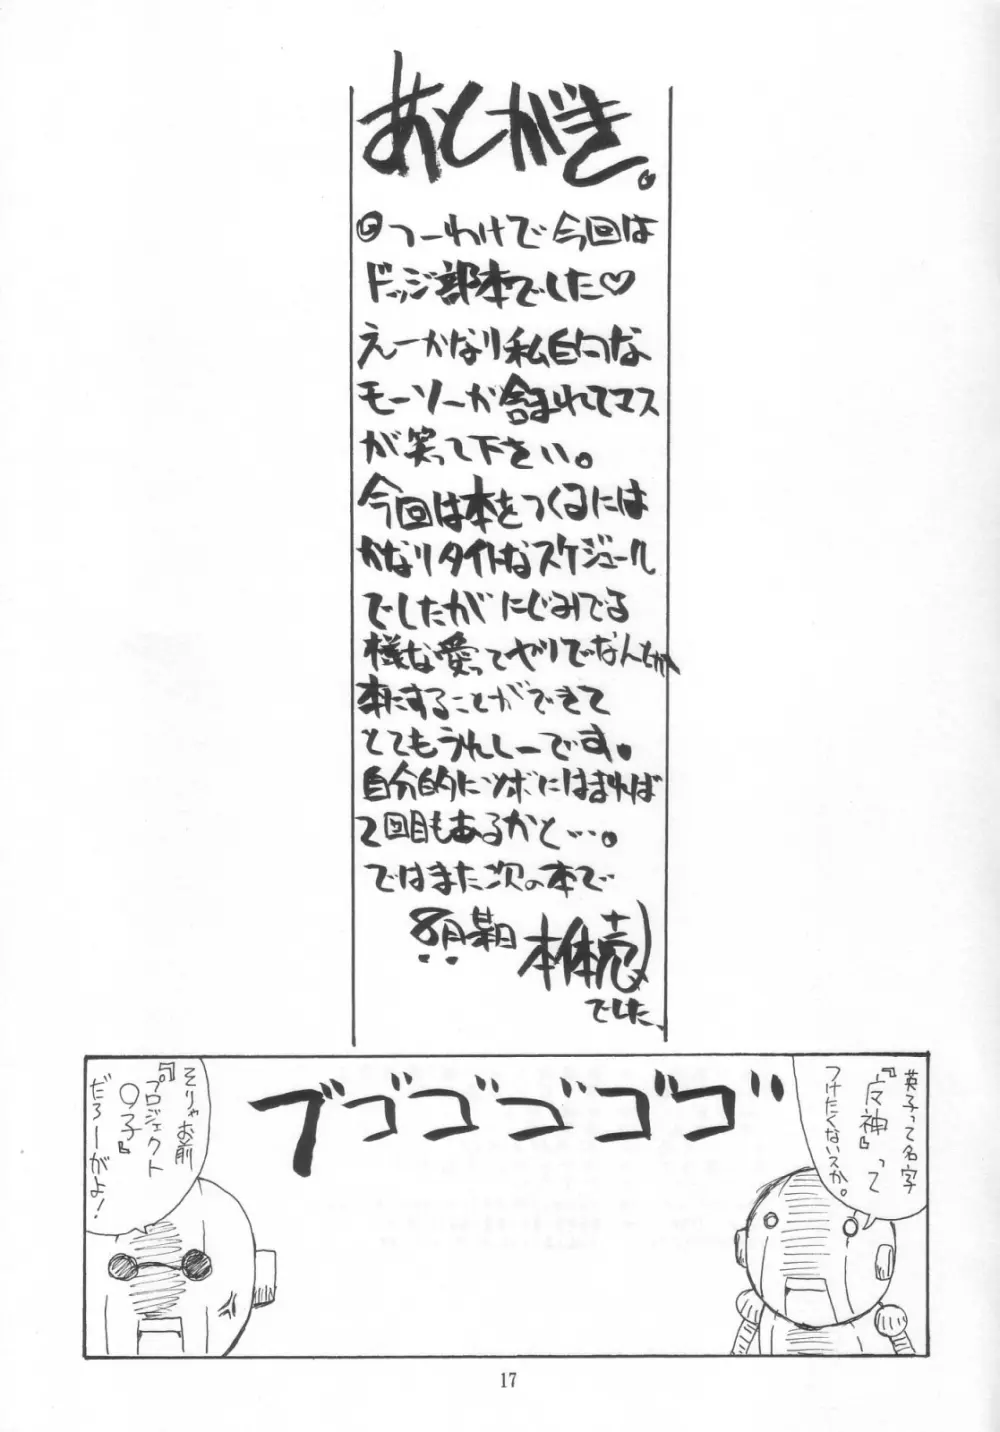 あとがき。
つーわけで今回は
ドッジ部本でした♡
えーかなり私的な
モーソーが含まれてマス
が笑って下さい。
今回は本をつくるには
かなりタイトなスケジュール
でしたがにじみでる
様な愛ってヤツでなんとか
本にすることができて
とてもうれしーです。
自分的にツボにはまれば
2回目もあるかと…。
ではまた次の本で
8月某日 本体売
でした
英子って名字
『反神』って
つけたくないスか。
ブゴゴゴゴゴ
そりゃお前
『プロジェクト
○子』
だろーがよ!
17